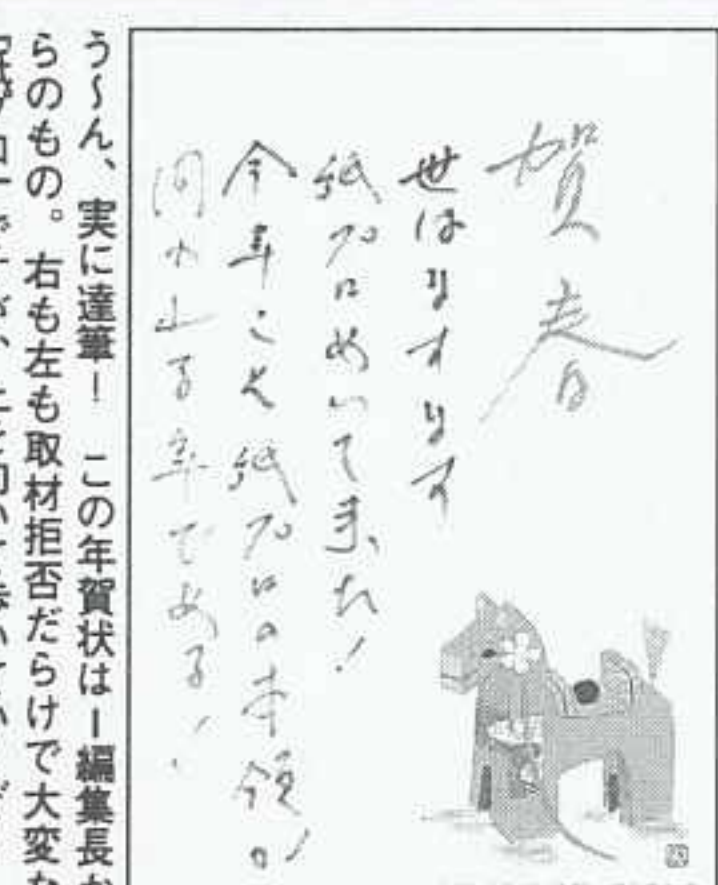 賀春
世はますます
紙プロめいて来た!
今年こそ紙プロの本領が
問われる年である!
う〜ん、実に達筆! この年賀状はI編集長か
らのもの。右も左も取材拒否だらけで大変な